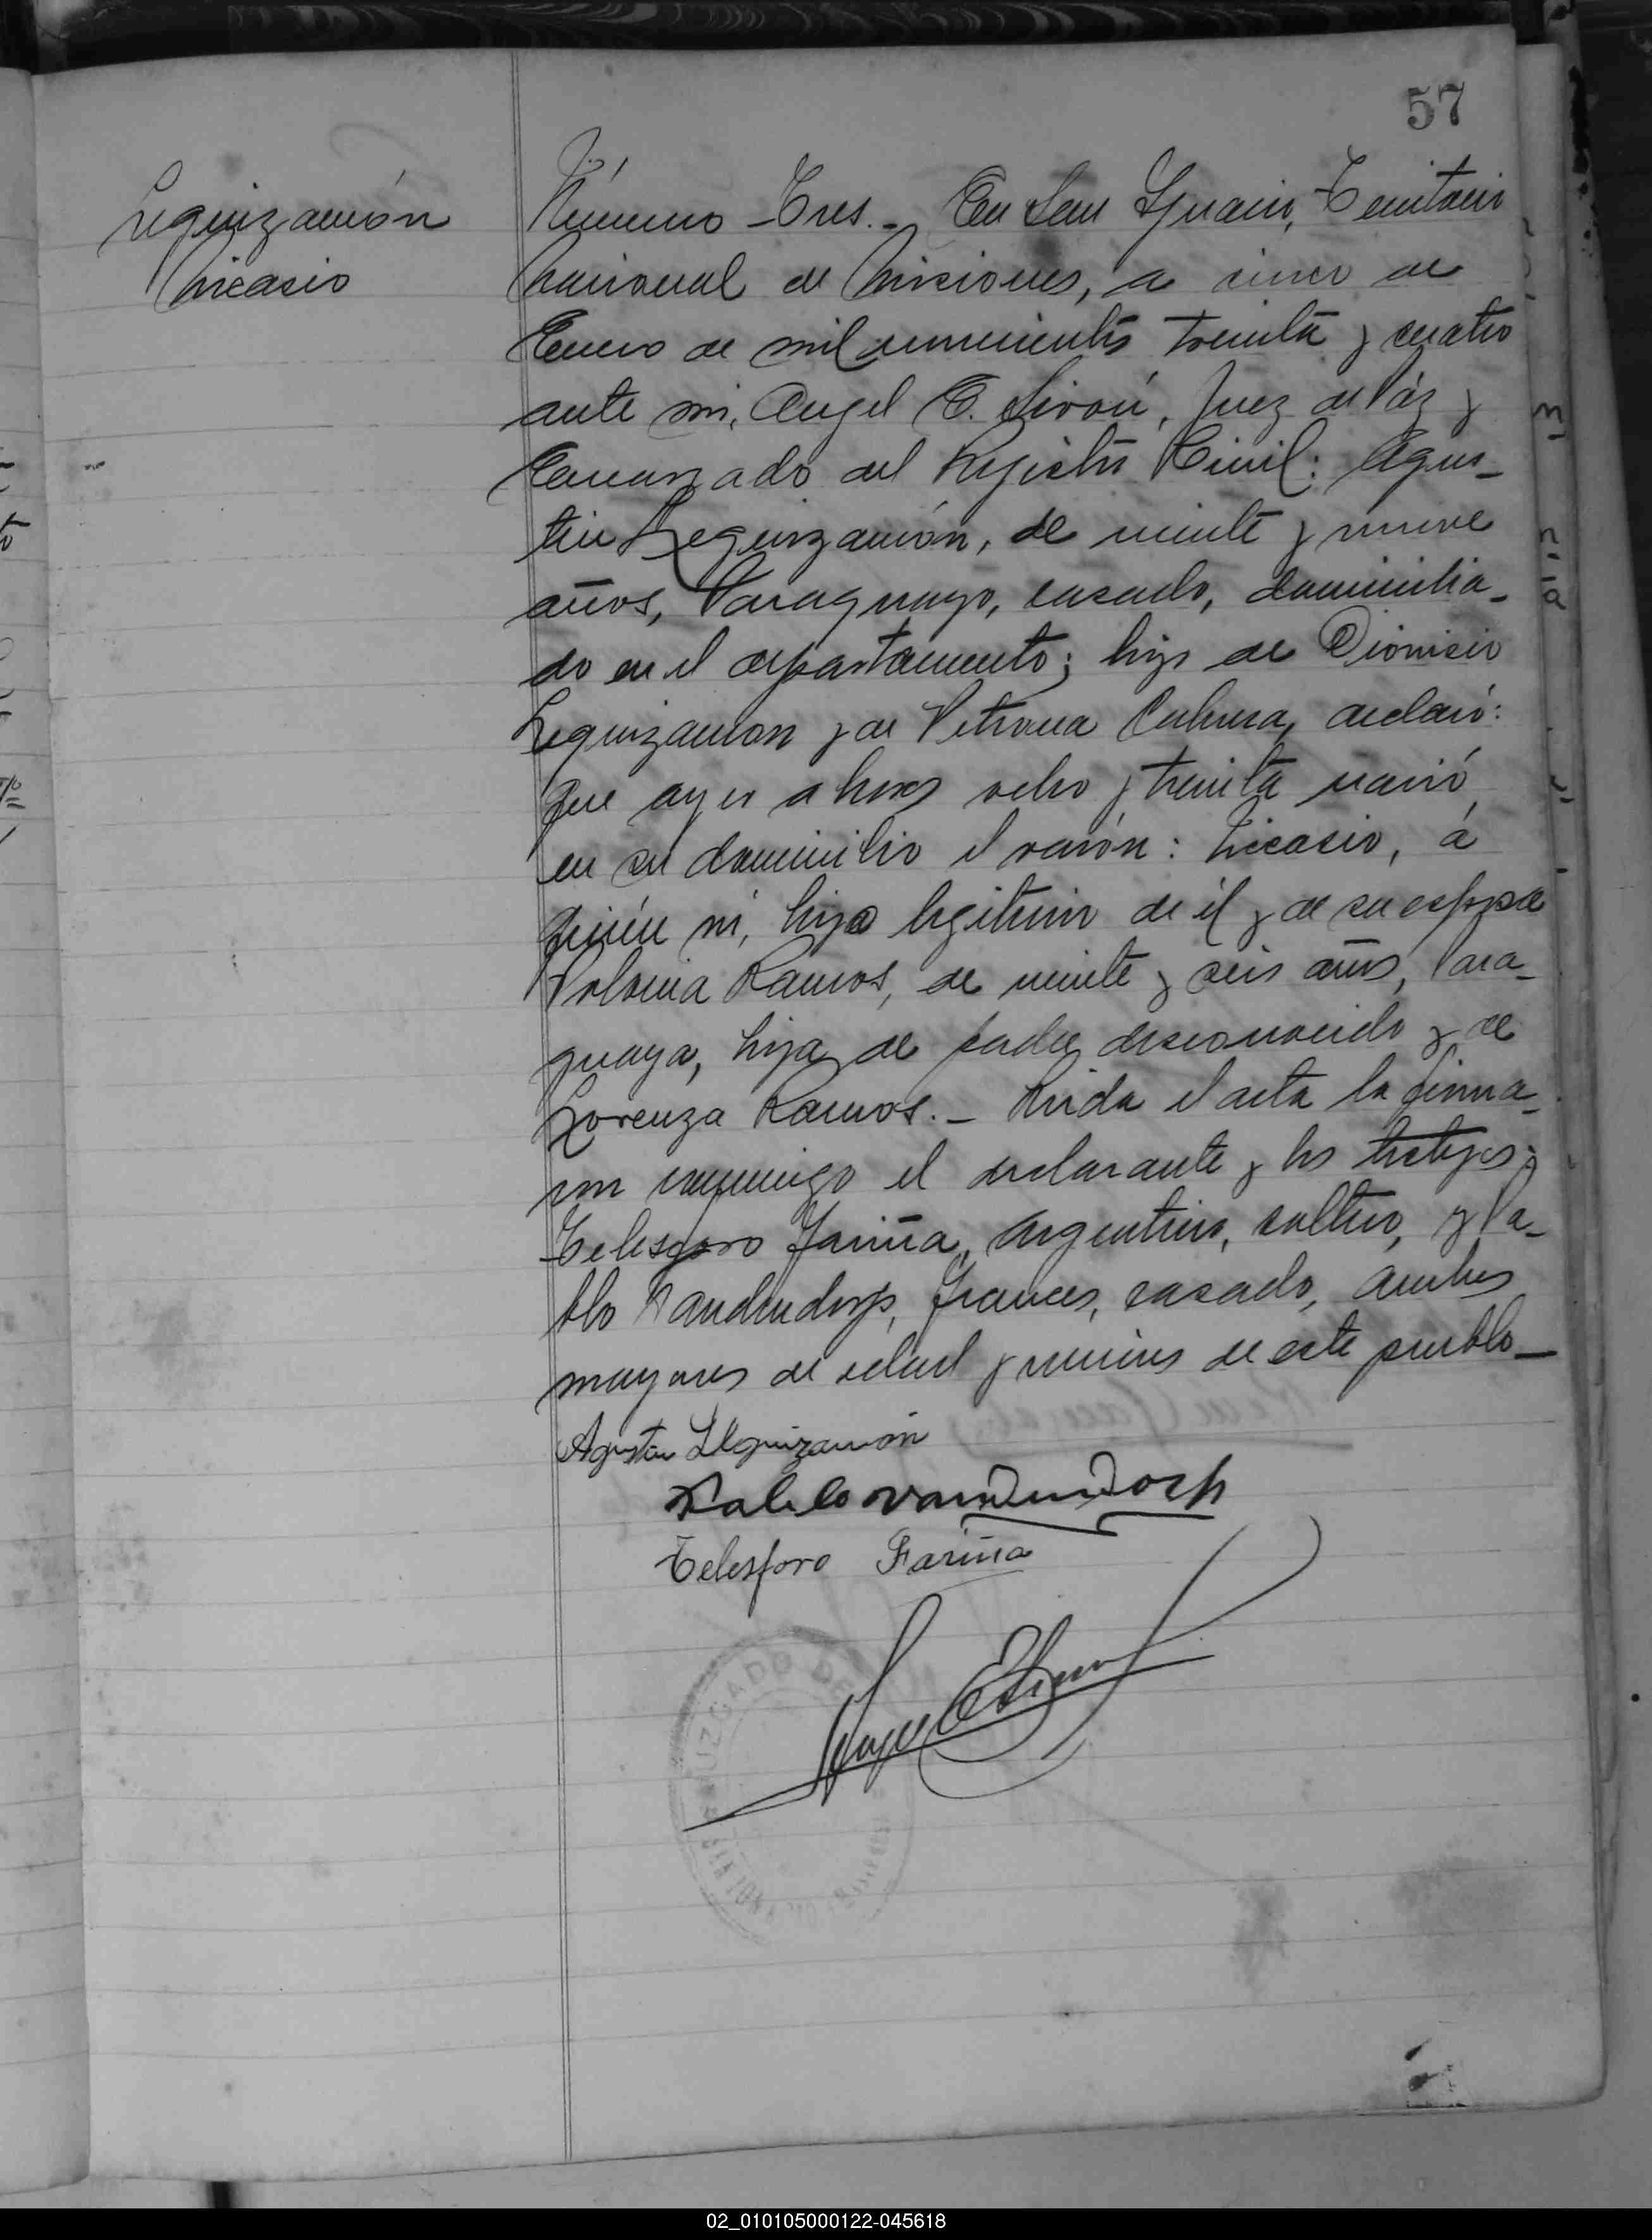 57
Leguizamón
Nicasio
Número Tres.- En San Ignacio, Territorio
Nacional de Misiones, a cinco de
Enero de mil novecientos treinta y cuatro
ante mi, Angel E. , Juez de Páz y
Encargado del Registro Civil: Agus-
tin Leguizamón, de veinte y nueve
años, Paraguayo, casado, domicilia-
do en el departamento; hijo de Dionicio
Leguizamon y de Petrona Cabrera, declaró:
Que ayer a horas ocho y treinta nació,
en su domicilio el varón: Nicasio, á
quién ví, hijo legitimo de él y de su esposa
Polonia Ramos, de veinte y seis años, Para-
guaya, hija de padre desconocido y de
Lorenza Ramos.- Leida el acta la firma-
ron conmigo el declarante y los testigos:
Telesforo Fariña, Argentino, soltero, y Pa-
blo Vandendorp, Frances, casado, ambos
mayores de edad y vecinos de este pueblo-
Agustin Leguizamón
Pablo Vandendorp
Telesforo Fariña
JUZGADO DE
02_010105000122-045618